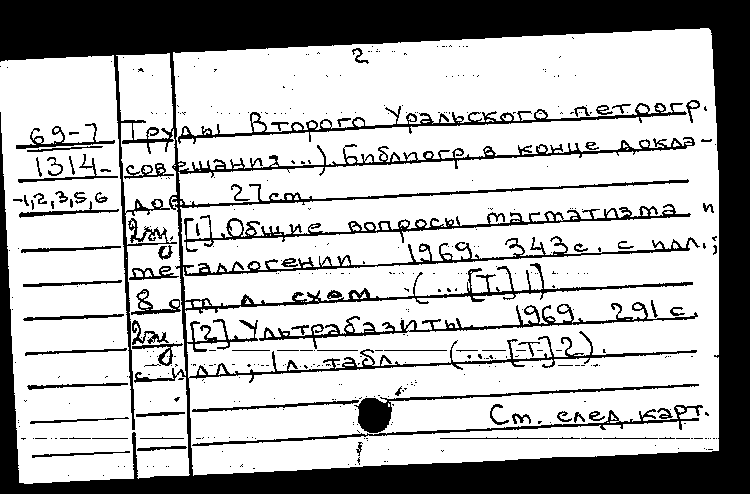 2
69-7 Труды Второго Уральского петрогр.
1314- совещания...). Библиогр. в конце докла-
-1,2,3,5,6 дов. 27 см.
2эк. [1]. Общие вопросы магматизма и
металлогении. 1969. 343 с. с илл.;
8 отд. л. схем. (... [Т.] 1).
2эк [2]. Ультрабазиты. 1969. 291 с.
с илл.; 1 л. табл. (... [Т.] 2).
См. след. карт.